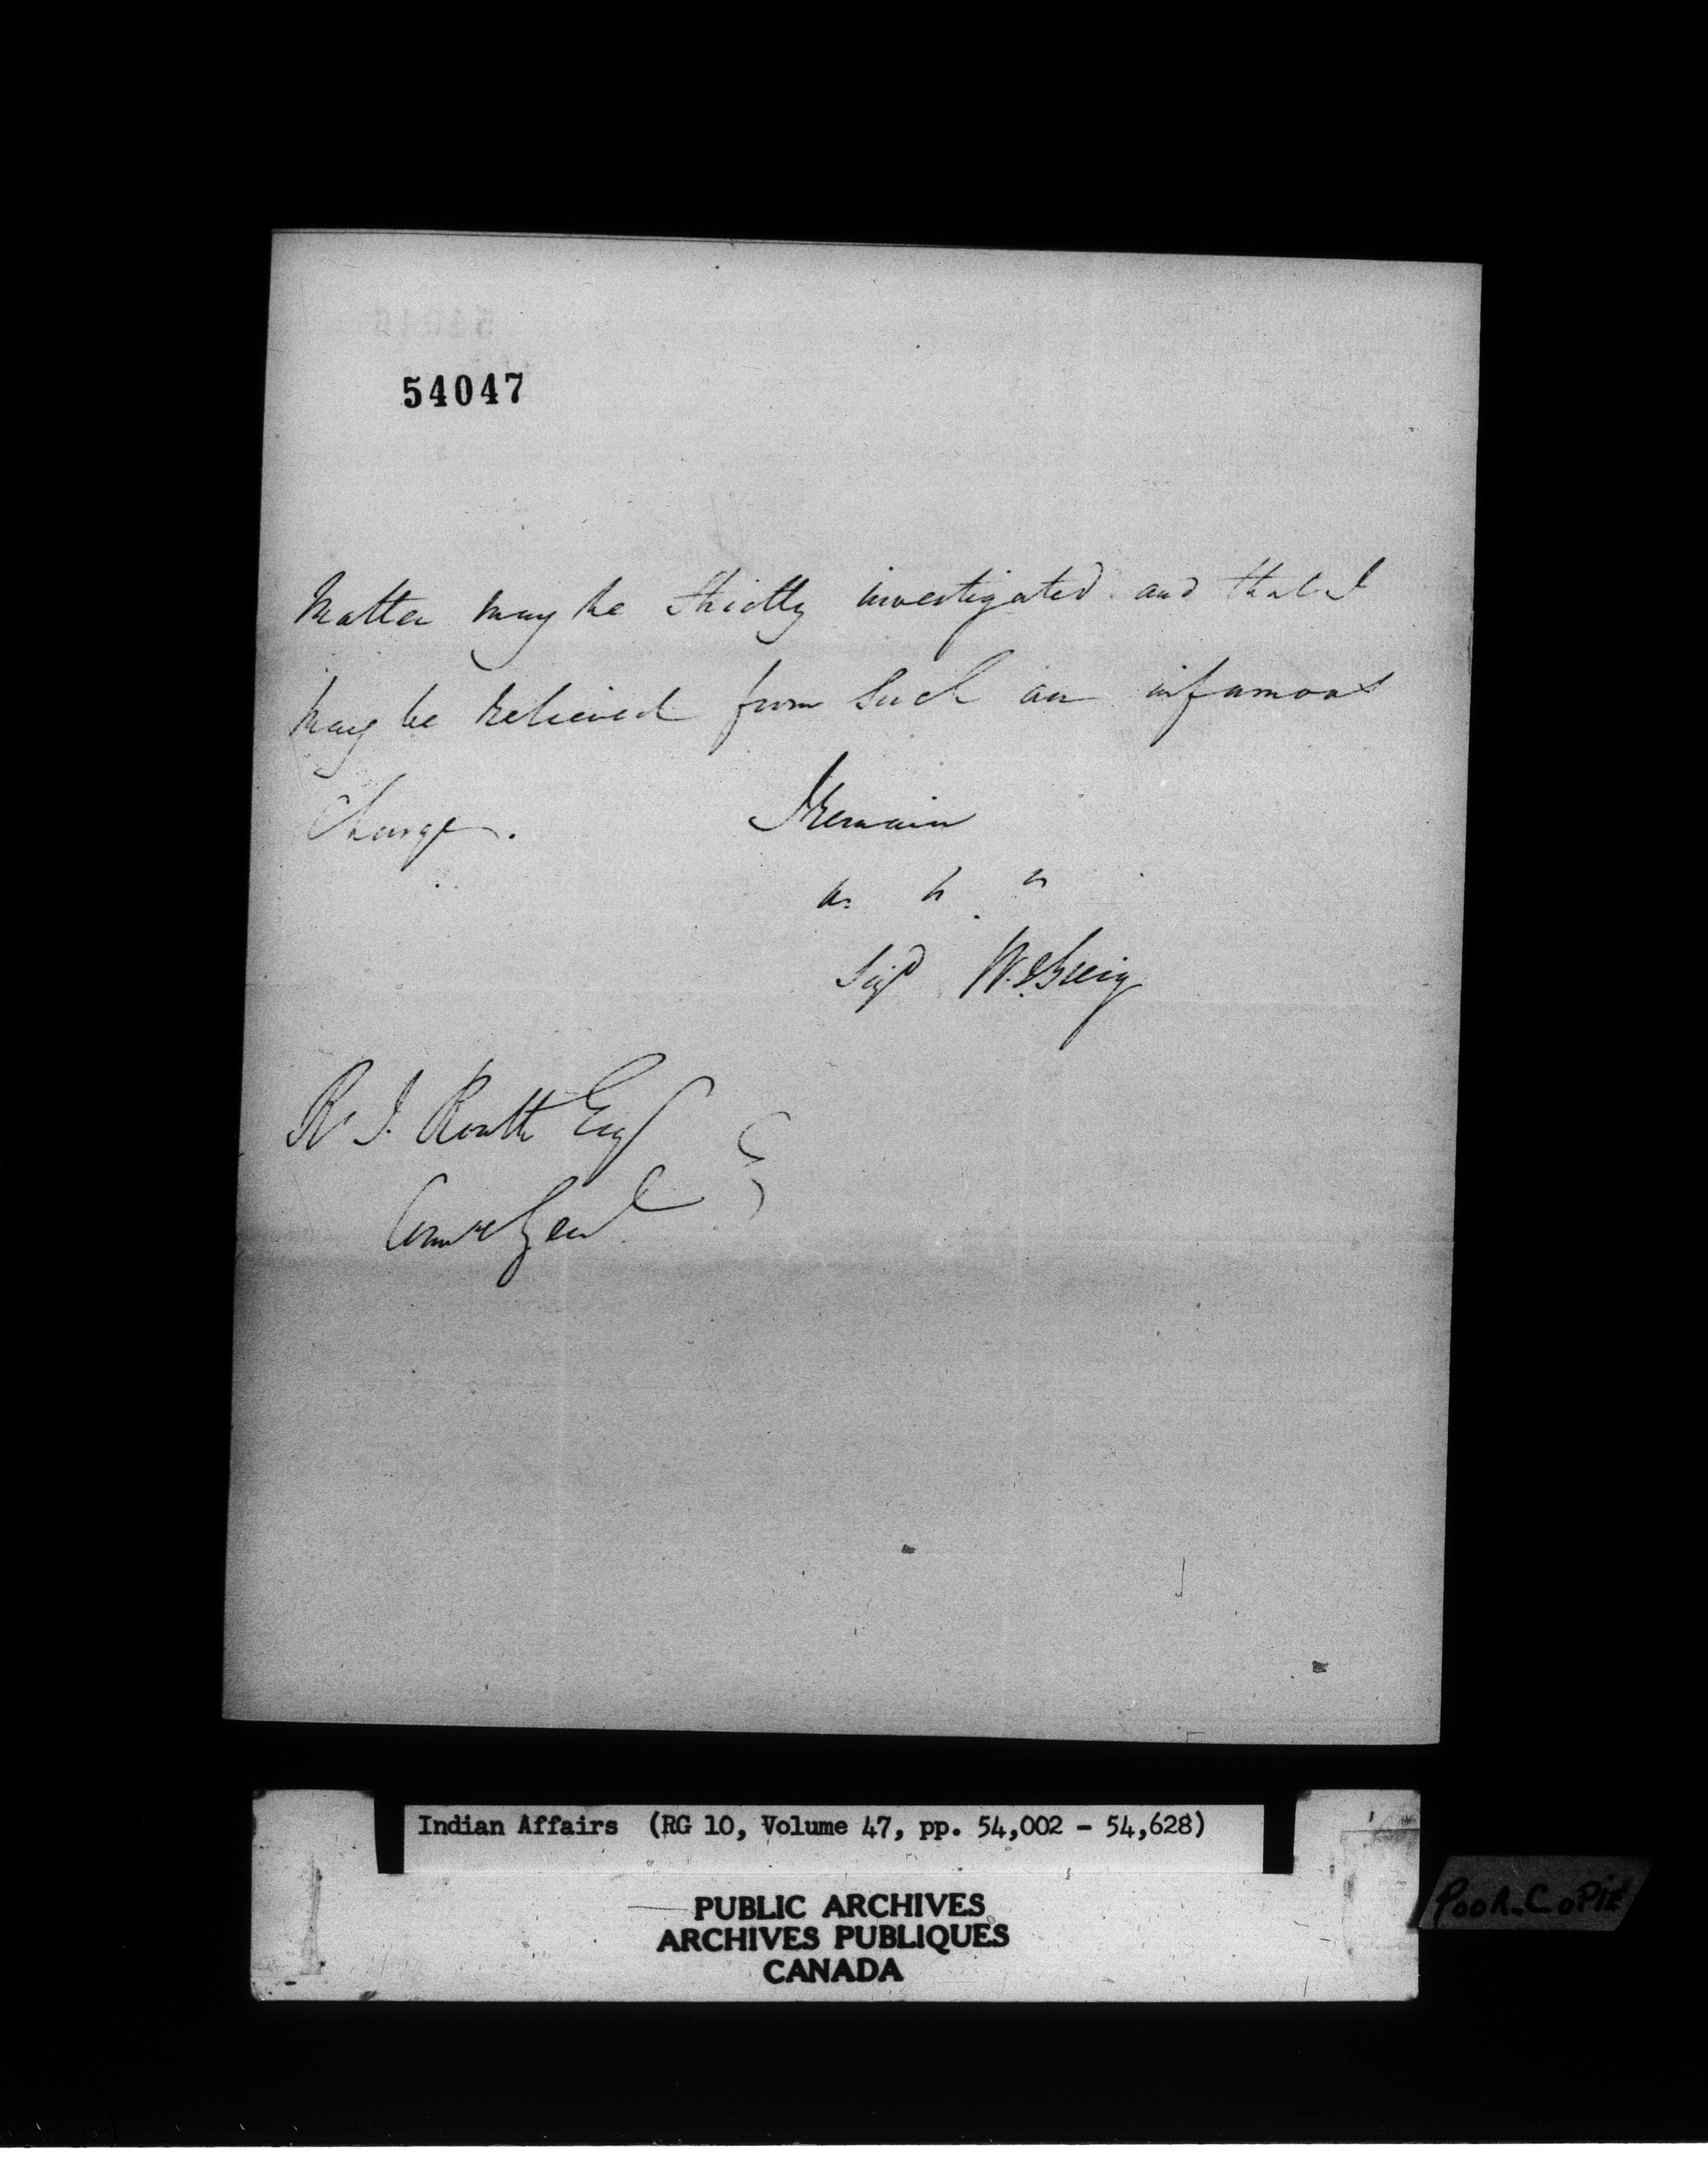 54047
Matter may be Strictly investigated and that I
may be relieved from Such an infamous
Charge.
I Remain
Sigd W. Greig
R. I. Routh Esqr
Comm Genl
Indian Affairs (RG 10, Volume 47, pp. 54,002 - 54,628)
PUBLIC ARCHIVES
ARCHIVES PUBLIQUES
CANADA
POOR COPIE